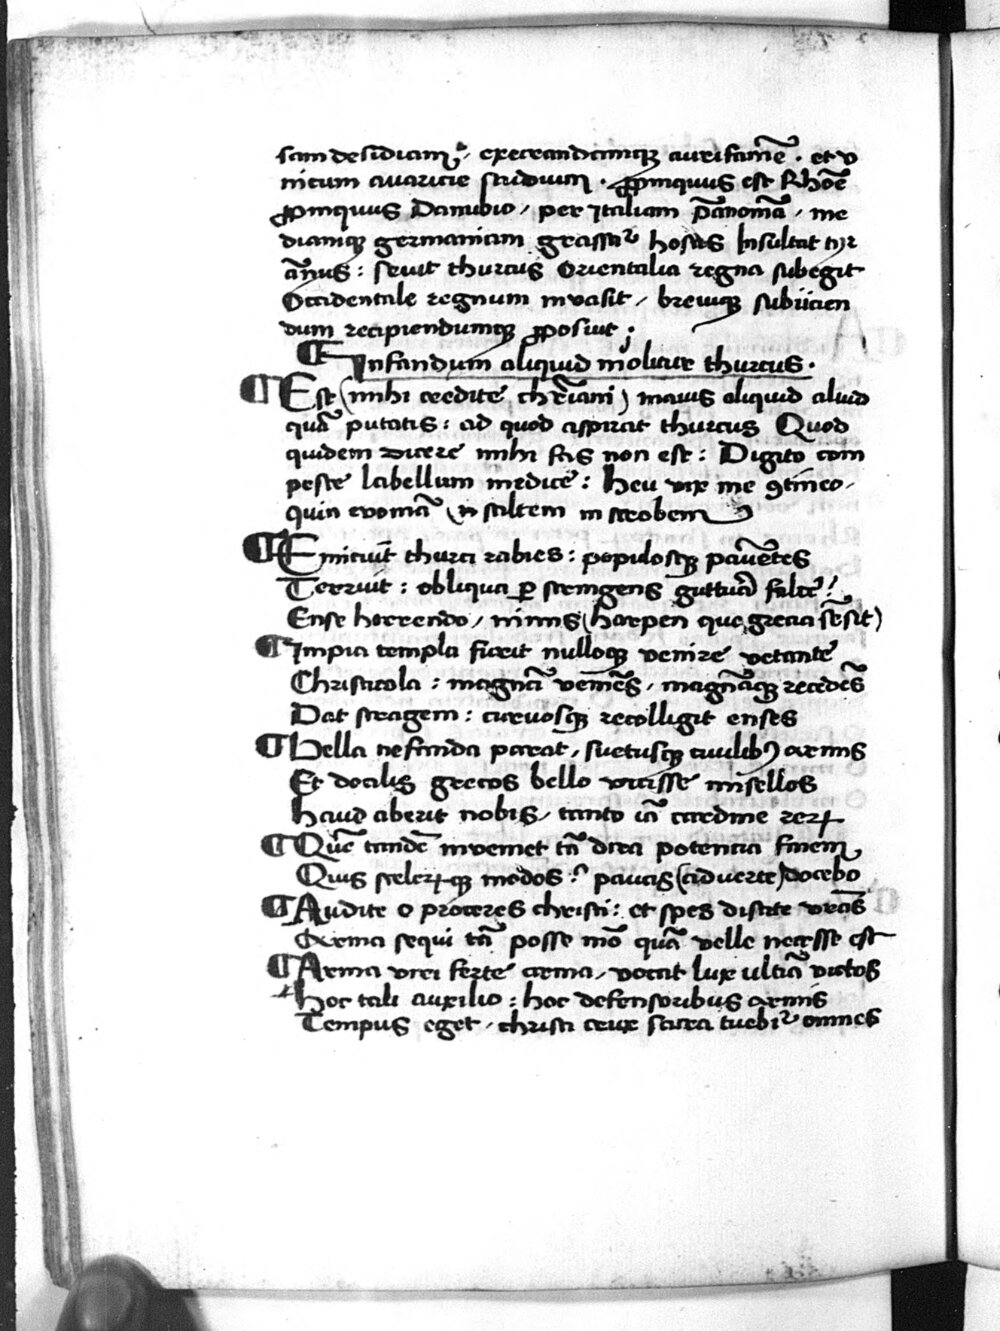 sam desidiam, execrandamque aurifamē. et v
nicum avaricie studium. ꝓpinquus est Rhoē
ꝓpinquus Danubio, per Italiam pānoniā, me
diamque germaniam grassat̉ hostis Insultat tyr
ānus: sevit thurcus Orientalia regna subegit
Occidentale regnum invasit, breuique subiicien
dum recipiendumque ꝓposuit;
¶ Infandum aliquid molitur thurcus.
¶ Est (mihi credite chr̄iani) maius aliquid aliud
quā putatis: ad quod aspirat thurcus Quod
quidem dicere mihi fas non est: Digito com
pesce labellum medice: heu vix me ꝯtineo,
quin evomā vn̄ saltem in scrobem
¶ Emicuit thurci rabies: populosque pavētes
Terruit: obliqua ꝑ stringens guttura falce!
Ense horrendo, nimis (harpen que grecia sēsit)
¶ Impia templa furit nulloque venire vetante
Christicola: magnā veniēs, magnāque recedēs
Dat stragem: curvosque recolligit enses
¶ Bella nefanda parat, suetusque ciuilibꝰ armis
Et docilis grecos bello vicisse misellos
haud aberit nobis, tanto iā cardine reꝝ
¶ Quē tandē inveniet tā dira potencia finem
Quis sceleꝝque modos? paucis (aduerte) docebo
¶ Audite o proceres christi: et spes discite vr̄as
Arma sequi tā posse mō quā velle necesse est
¶ Arma viri ferte arma, vocat lux vltīa victos
hoc tali auxilio: hoc defensoribus armis
Tempus eget, christi crux sacra tuebit̉ omnes